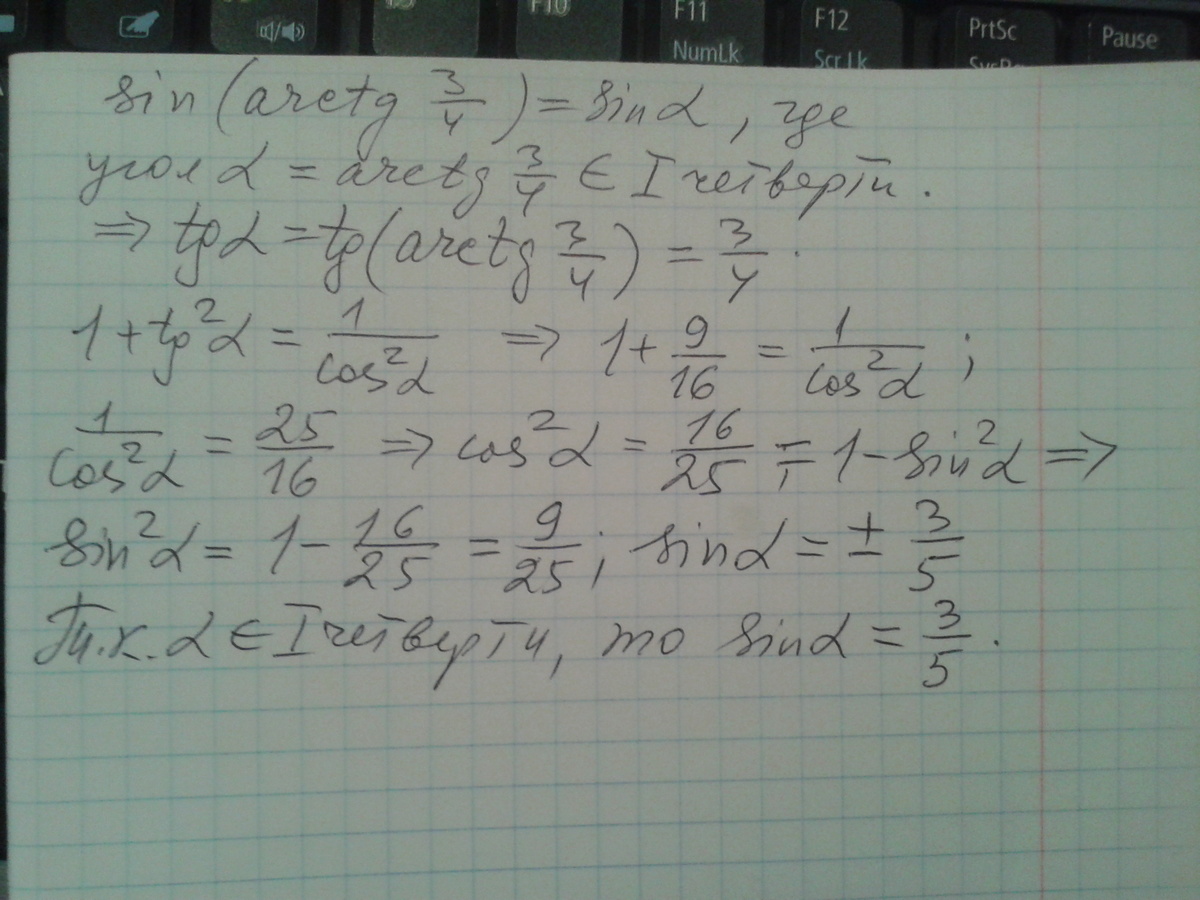 F10 F11 F12 PrtSc Pause
NumLk Scr Lk
sin(arctg 3/4) = sin α, где
угол α = arctg 3/4 ∈ I четверти.
⇒ tg α = tg(arctg 3/4) = 3/4.
1 + tg²α = 1/cos²α ⇒ 1 + 9/16 = 1/cos²α ;
1/cos²α = 25/16 ⇒ cos²α = 16/25 ; = 1 - sin²α ⇒
sin²α = 1 - 16/25 = 9/25 ; sin α = ± 3/5
Т.к. α ∈ I четверти, то sin α = 3/5.